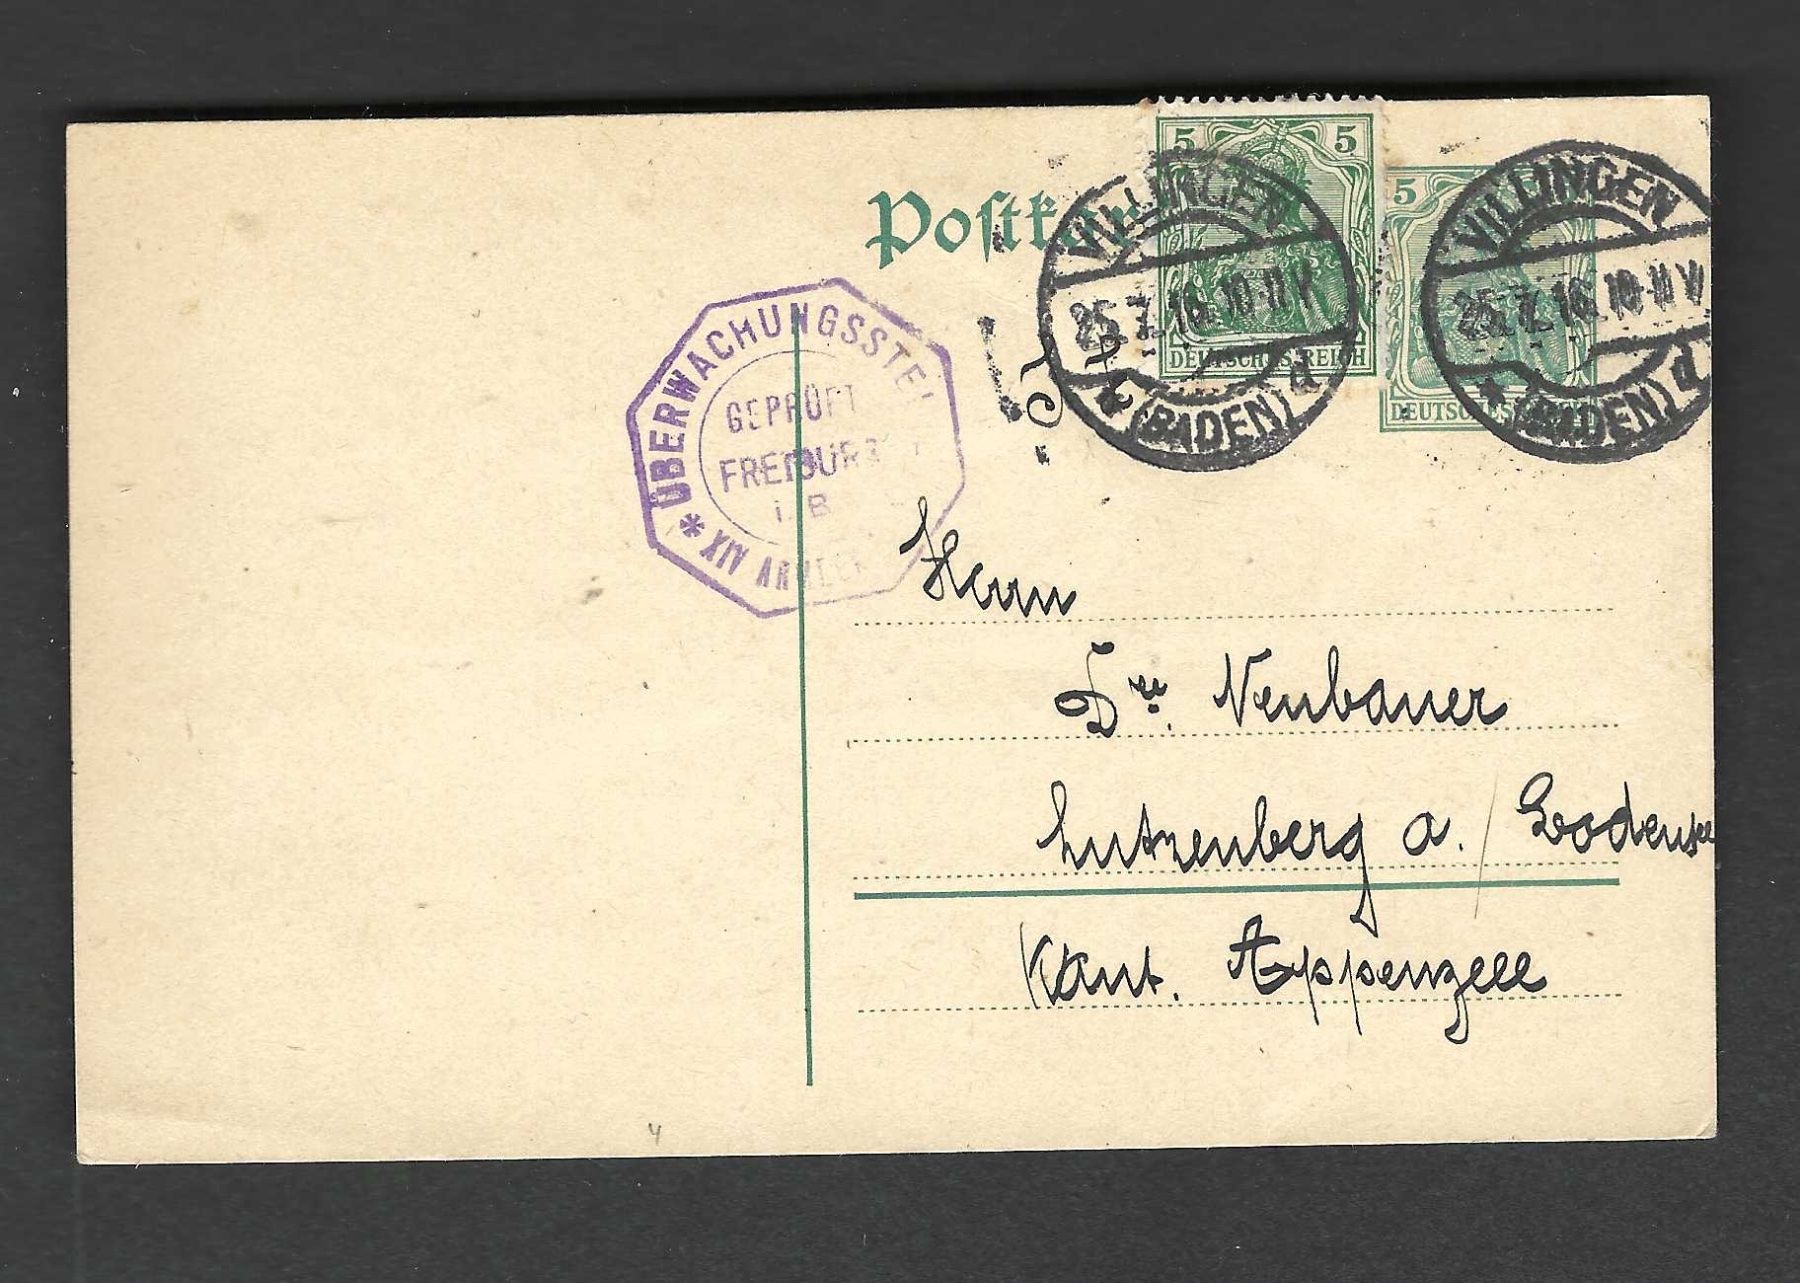 Postkarte
5 5
DEUTSCHES REICH
5
DEUTSCHES
VILLINGEN
25.7.16.10-11V
* (BADEN) d
VILLINGEN
25.7.16.10-11V
* (BADEN) d
ÜBERWACHUNGSSTEL
GEPRÜFT
FREIBURG
i. B
* XIV ARMEEK
Herrn
Dr. Neubauer
Lutzenberg a. / Bodensee
Kant. Appenzell